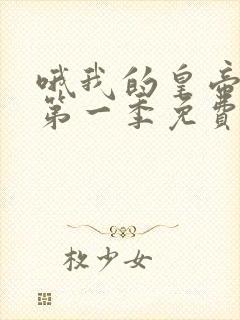 哦我的皇帝
第一季免费
枚少女